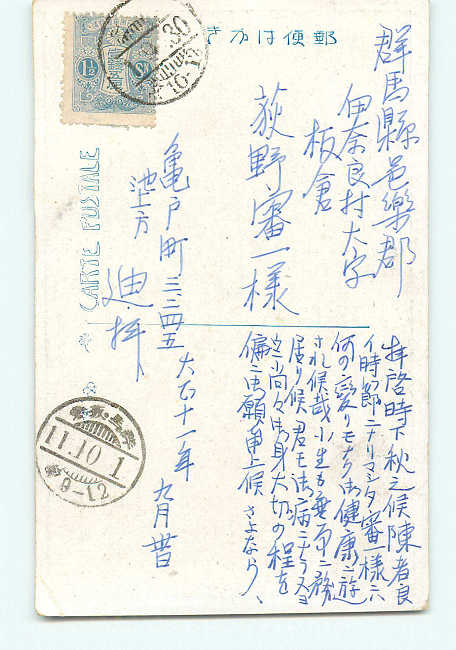 きかは便郵
CARTE POSTALE
1½
30
10-1
群馬縣邑樂郡
伊奈良村大字
板倉
荻野審一樣
亀戸町三、二四五
池上方
迪拝
大正十一年 九月 昔
拝啓時下秋之候陳者良
イ時節ニナリマシタ審一様ニハ
何の変りモナク御健康ニ遊
され候哉小生も無事ニ務
居り候君モ御病ニナラヌヨ
尚々御身大切の程を
偏ニ御願申上候 さよなら
11.10.1
9-12